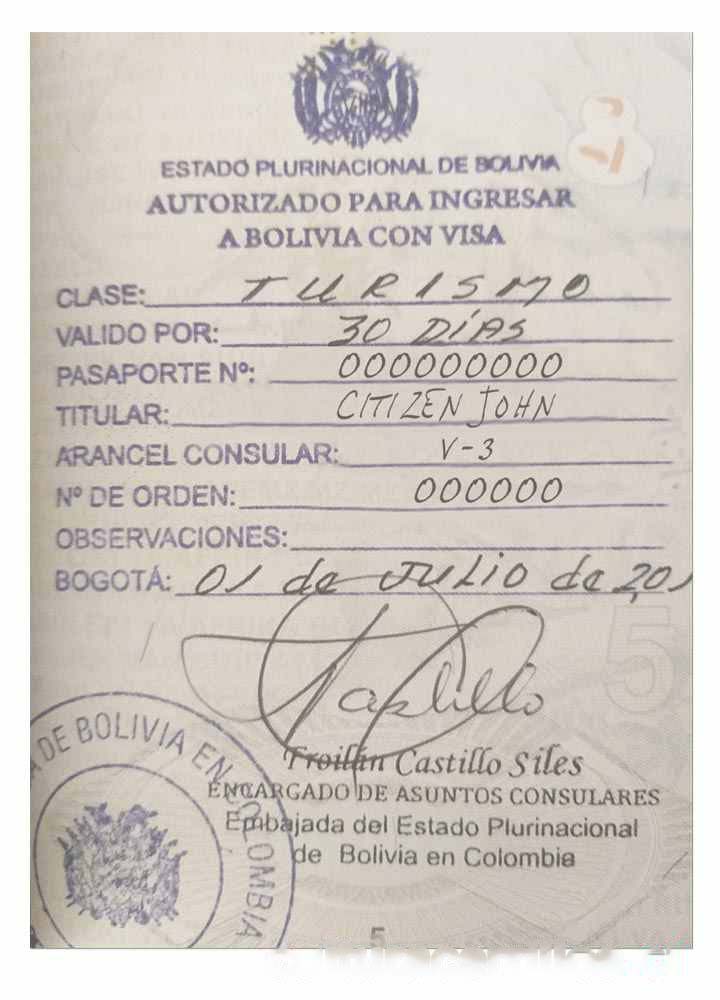 ESTADO PLURINACIONAL DE BOLIVIA
AUTORIZADO PARA INGRESAR
A BOLIVIA CON VISA
CLASE: TURISMO
VALIDO POR: 30 DÍAS
PASAPORTE Nº: 000000000
TITULAR: CITIZEN JOHN
ARANCEL CONSULAR: V-3
Nº DE ORDEN: 000000
OBSERVACIONES:
BOGOTÁ: 01 de JULIO de 201
Castillo
Troilán Castillo Siles
ENCARGADO DE ASUNTOS CONSULARES
Embajada del Estado Plurinacional
de Bolivia en Colombia
A DE BOLIVIA EN COLOMBIA
5
5